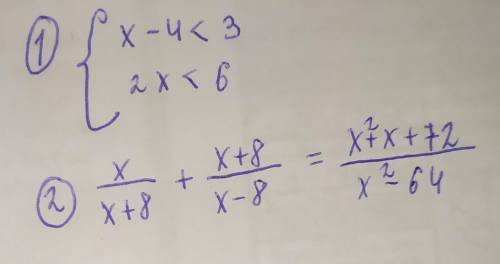 ① { x - 4 < 3
2x < 6
② x/(x+8) + (x+8)/(x-8) = (x²+x+72)/(x²-64)